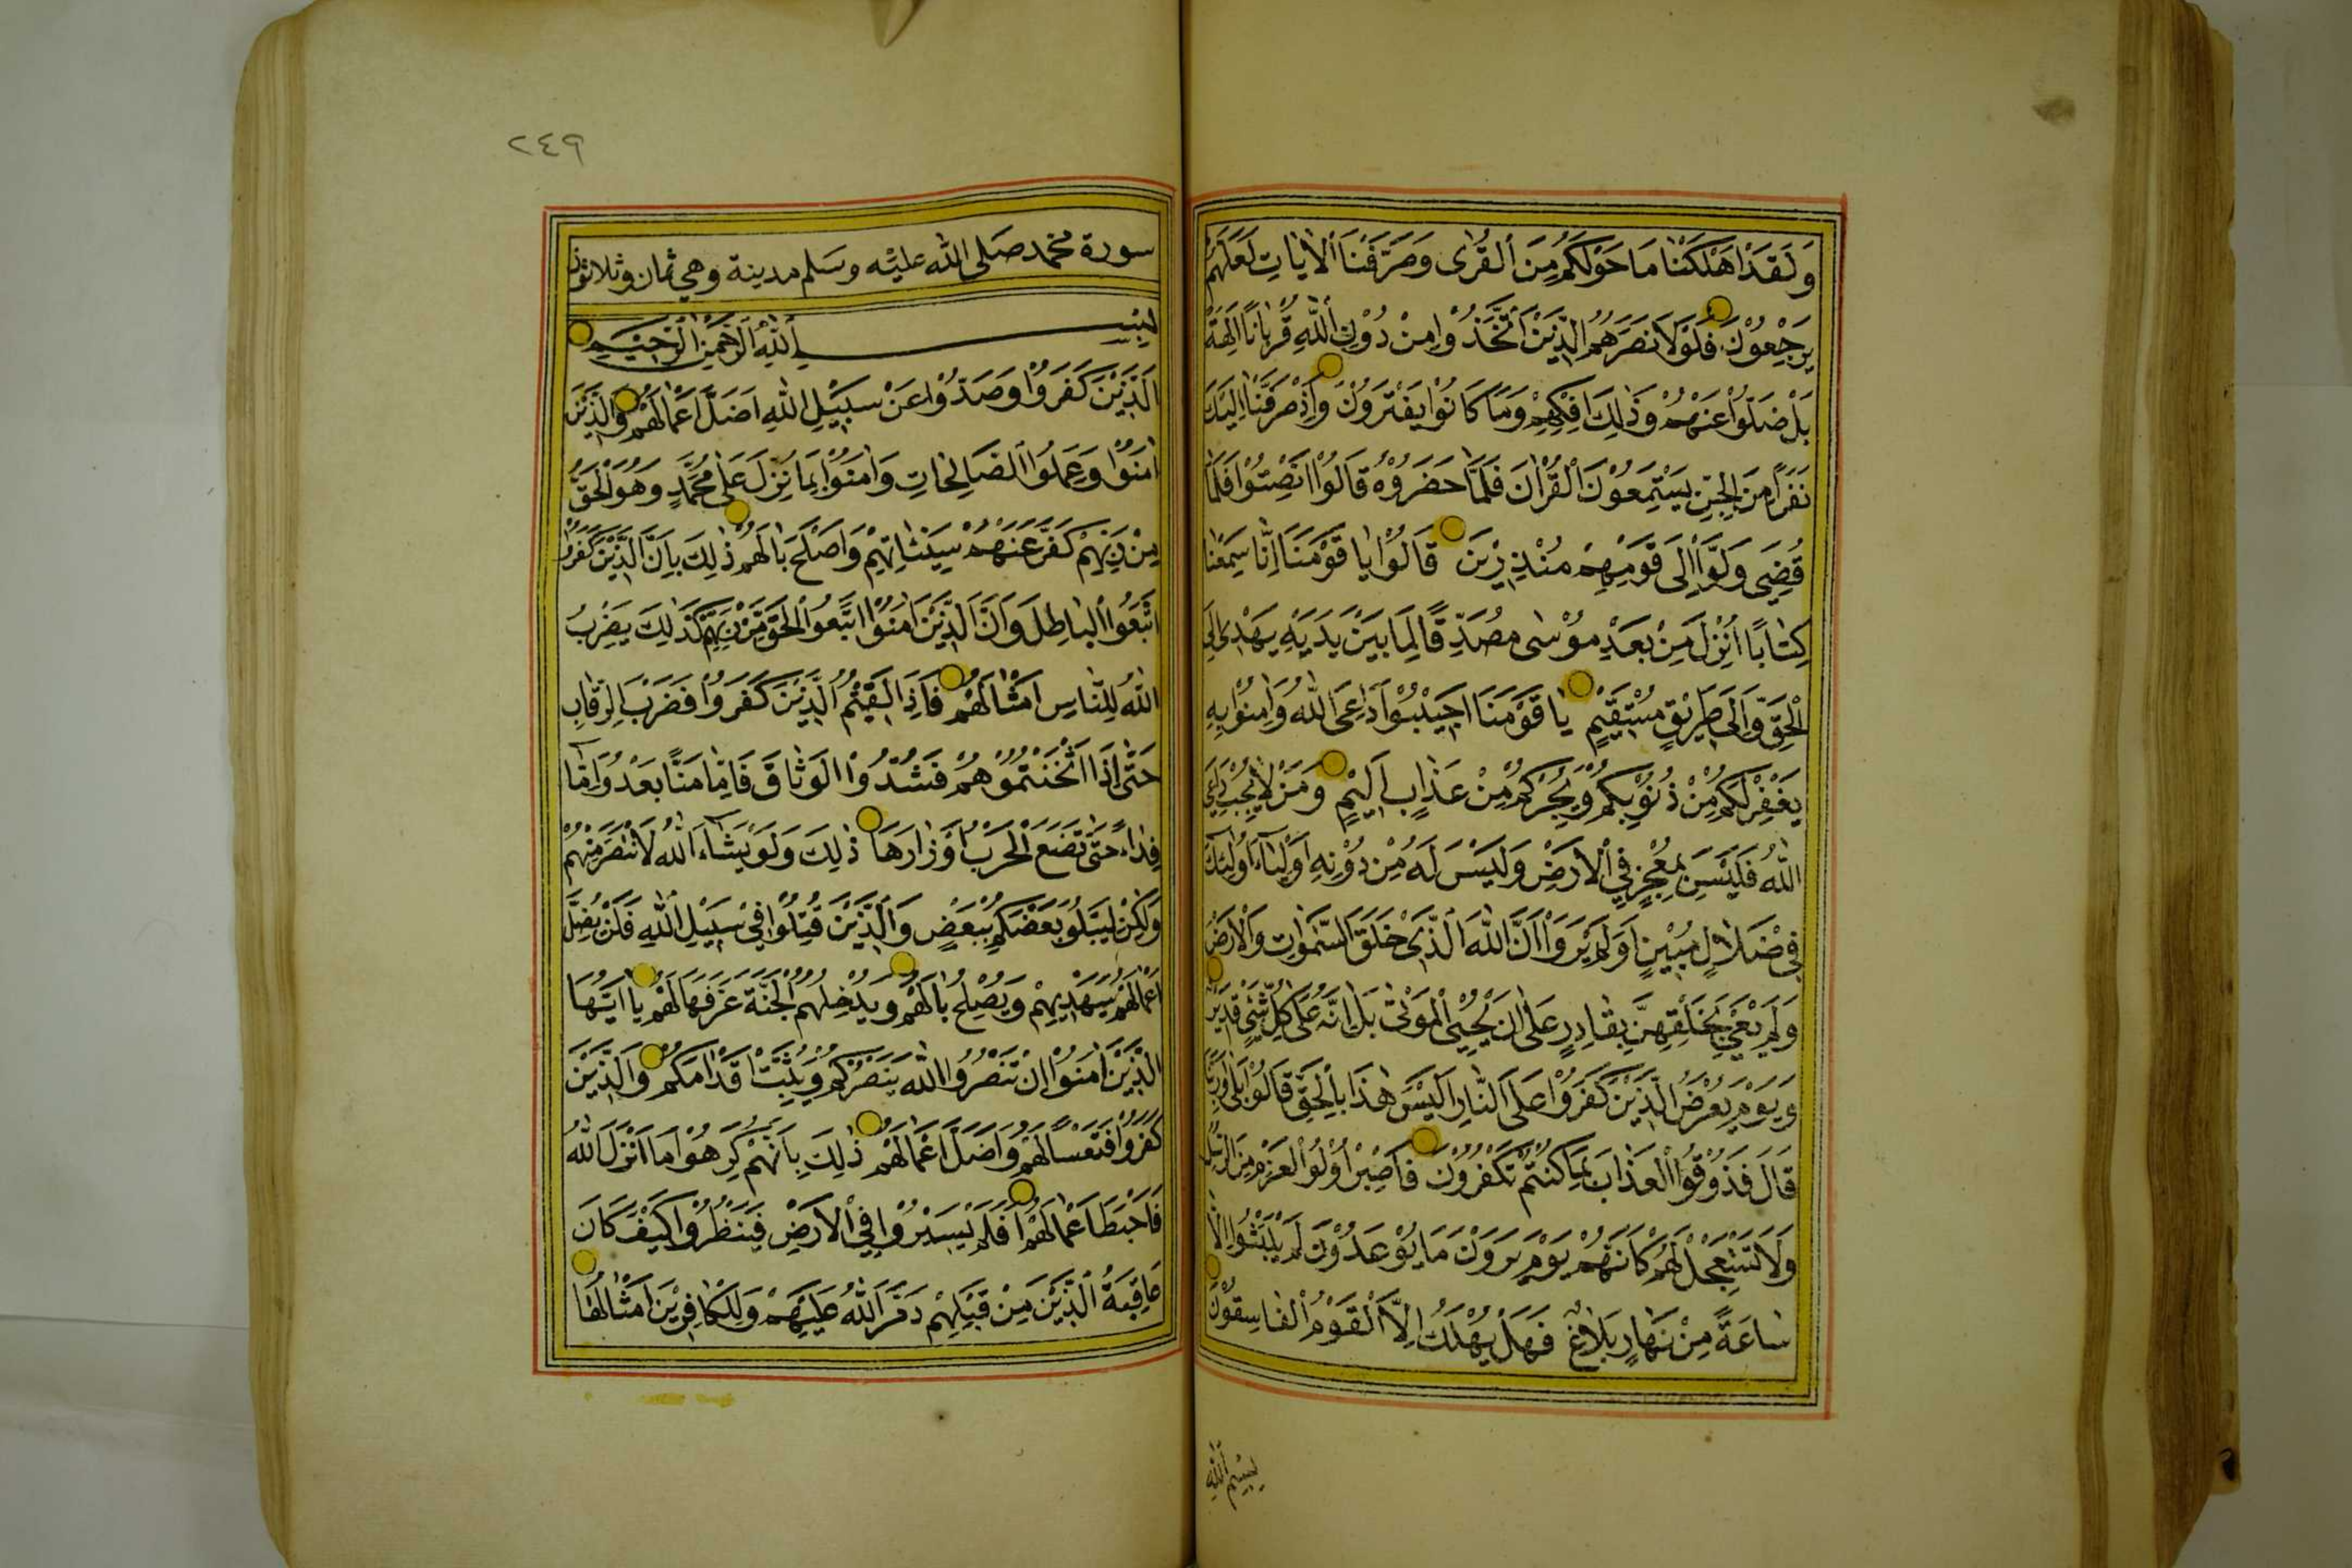 وَلَقَدْ اَهْلَكْنَا مَا حَوْلَكُمْ مِنَ الْقُرٰى وَصَرَّفْنَا الْاٰيَاتِ لَعَلَّهُمْ
يَرْجِعُوْنَ فَلَوْلَا نَصَرَهُمُ الَّذِيْنَ اتَّخَذُوْا مِنْ دُوْنِ اللّٰهِ قُرْبَانًا اٰلِهَةً
بَلْ ضَلُّوْا عَنْهُمْ وَذٰلِكَ اِفْكُهُمْ وَمَا كَانُوْا يَفْتَرُوْنَ وَاِذْ صَرَفْنَا اِلَيْكَ
نَفَرًا مِنَ الْجِنِّ يَسْتَمِعُوْنَ الْقُرْاٰنَ فَلَمَّا حَضَرُوْهُ قَالُوْا اَنْصِتُوْا فَلَمَّا
قُضِيَ وَلَّوْا اِلٰى قَوْمِهِمْ مُنْذِرِيْنَ قَالُوْا يَا قَوْمَنَا اِنَّا سَمِعْنَا
كِتَابًا اُنْزِلَ مِنْ بَعْدِ مُوْسٰى مُصَدِّقًا لِمَا بَيْنَ يَدَيْهِ يَهْدِىْ اِلَى
الْحَقِّ وَاِلٰى طَرِيْقٍ مُسْتَقِيْمٍ يَا قَوْمَنَا اَجِيْبُوْا دَاعِيَ اللّٰهِ وَاٰمِنُوْا بِهِ
يَغْفِرْ لَكُمْ مِنْ ذُنُوْبِكُمْ وَيُجِرْكُمْ مِنْ عَذَابٍ اَلِيْمٍ وَمَنْ لَا يُجِبْ دَاعِيَ
اللّٰهِ فَلَيْسَ بِمُعْجِزٍ فِي الْاَرْضِ وَلَيْسَ لَهُ مِنْ دُوْنِهِ اَوْلِيَاءُ اُولٰئِكَ
فِيْ ضَلَالٍ مُبِيْنٍ اَوَلَمْ يَرَوْا اَنَّ اللّٰهَ الَّذِيْ خَلَقَ السَّمٰوَاتِ وَالْاَرْضَ
وَلَمْ يَعْيَ بِخَلْقِهِنَّ بِقَادِرٍ عَلٰى اَنْ يُحْيِيَ الْمَوْتٰى بَلٰى اِنَّهُ عَلٰى كُلِّ شَيْءٍ قَدِيْرٌ
وَيَوْمَ يُعْرَضُ الَّذِيْنَ كَفَرُوْا عَلَى النَّارِ اَلَيْسَ هٰذَا بِالْحَقِّ قَالُوْا بَلٰى وَرَبِّنَا
قَالَ فَذُوْقُوا الْعَذَابَ بِمَا كُنْتُمْ تَكْفُرُوْنَ فَاصْبِرْ اُولُوا الْعَزْمِ مِنَ الرُّسُلِ
وَلَا تَسْتَعْجِلْ لَهُمْ كَاَنَّهُمْ يَوْمَ يَرَوْنَ مَا يُوْعَدُوْنَ لَمْ يَلْبَثُوْا اِلَّا
سَاعَةً مِنْ نَهَارٍ بَلَاغٌ فَهَلْ يُهْلَكُ اِلَّا الْقَوْمُ الْفَاسِقُوْنَ
بِسْمِ اللّٰهِ
٢٤٩
سورة محمد صلى الله عليه وسلم مدينة وهي ثمان وثلاثون
بِسْمِ اللّٰهِ الرَّحْمٰنِ الرَّحِيْمِ
اَلَّذِيْنَ كَفَرُوْا وَصَدُّوْا عَنْ سَبِيْلِ اللّٰهِ اَضَلَّ اَعْمَالَهُمْ وَالَّذِيْنَ
اٰمَنُوْا وَعَمِلُوا الصَّالِحَاتِ وَاٰمَنُوْا بِمَا نُزِّلَ عَلٰى مُحَمَّدٍ وَهُوَ الْحَقُّ
مِنْ رَبِّهِمْ كَفَّرَ عَنْهُمْ سَيِّئَاتِهِمْ وَاَصْلَحَ بَالَهُمْ ذٰلِكَ بِاَنَّ الَّذِيْنَ كَفَرُوْا
اتَّبَعُوا الْبَاطِلَ وَاَنَّ الَّذِيْنَ اٰمَنُوْا اتَّبَعُوا الْحَقَّ مِنْ رَبِّهِمْ كَذٰلِكَ يَضْرِبُ
اللّٰهُ لِلنَّاسِ اَمْثَالَهُمْ فَاِذَا لَقِيْتُمُ الَّذِيْنَ كَفَرُوْا فَضَرْبَ الرِّقَابِ
حَتّٰى اِذَا اَثْخَنْتُمُوْهُمْ فَشُدُّوا الْوَثَاقَ فَاِمَّا مَنًّا بَعْدُ وَاِمَّا
فِدَاءً حَتّٰى تَضَعَ الْحَرْبُ اَوْزَارَهَا ذٰلِكَ وَلَوْ يَشَاءُ اللّٰهُ لَانْتَصَرَ مِنْهُمْ
وَلٰكِنْ لِيَبْلُوَ بَعْضَكُمْ بِبَعْضٍ وَالَّذِيْنَ قُتِلُوْا فِيْ سَبِيْلِ اللّٰهِ فَلَنْ يُضِلَّ
اَعْمَالَهُمْ سَيَهْدِيْهِمْ وَيُصْلِحُ بَالَهُمْ وَيُدْخِلُهُمُ الْجَنَّةَ عَرَّفَهَا لَهُمْ يَا اَيُّهَا
الَّذِيْنَ اٰمَنُوْا اِنْ تَنْصُرُوا اللّٰهَ يَنْصُرْكُمْ وَيُثَبِّتْ اَقْدَامَكُمْ وَالَّذِيْنَ
كَفَرُوْا فَتَعْسًا لَهُمْ وَاَضَلَّ اَعْمَالَهُمْ ذٰلِكَ بِاَنَّهُمْ كَرِهُوْا مَا اَنْزَلَ اللّٰهُ
فَاَحْبَطَ اَعْمَالَهُمْ اَفَلَمْ يَسِيْرُوْا فِي الْاَرْضِ فَيَنْظُرُوْا كَيْفَ كَانَ
عَاقِبَةُ الَّذِيْنَ مِنْ قَبْلِهِمْ دَمَّرَ اللّٰهُ عَلَيْهِمْ وَلِلْكَافِرِيْنَ اَمْثَالُهَا